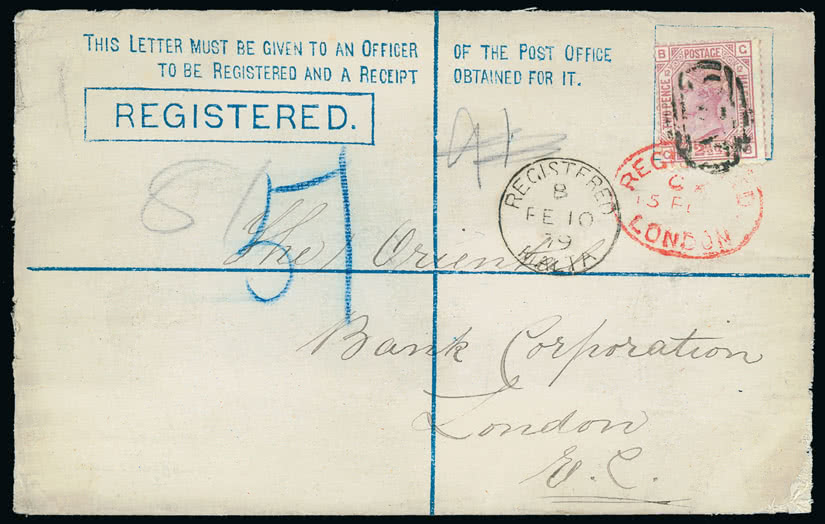 THIS LETTER MUST BE GIVEN TO AN OFFICER OF THE POST OFFICE
TO BE REGISTERED AND A RECEIPT OBTAINED FOR IT.
REGISTERED.
B POSTAGE G
REGISTERED
B
FE 10
79
MALTA
15 FE
LONDON
81
57
The Oriental
Bank Corporation
London
E.C.